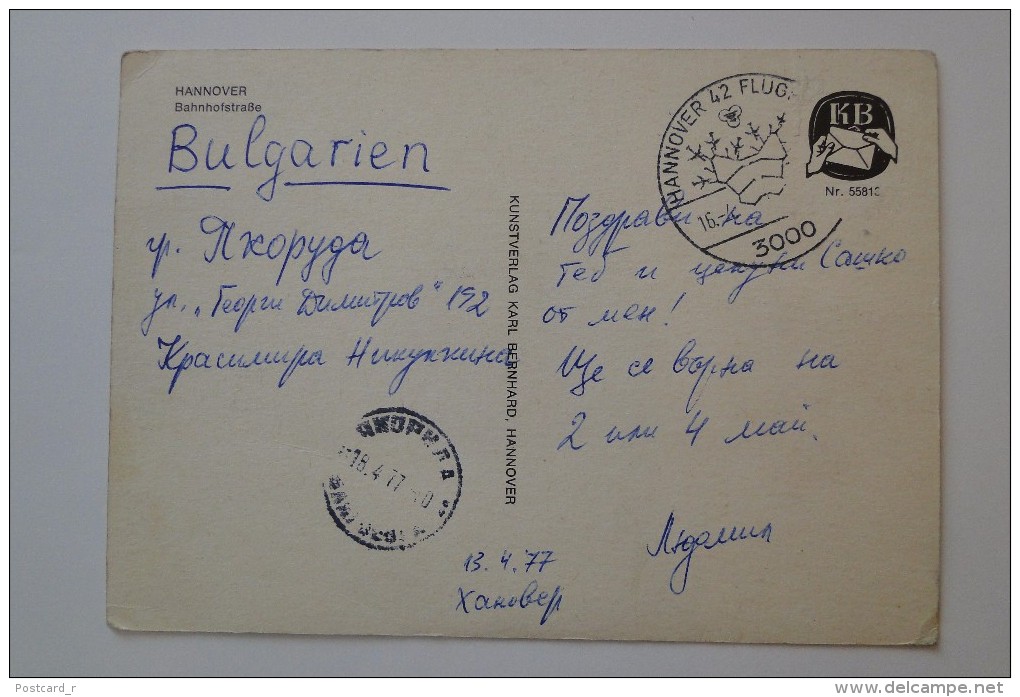 HANNOVER
Bahnhofstraße
Bulgarien
гр. Якоруда
ул. „Георги Димитров" 192
Красимира
KUNSTVERLAG KARL BERNHARD, HANNOVER
HANNOVER 42 FLUG
16.
3000
KB
Nr. 5581
Поздрави на
теб и целувки Сашко
от мен!
Ще се върна на
2 или 4 май.
13.4.77
Хановер
18.4.77
Postcard_r
http://www.delcampe.net